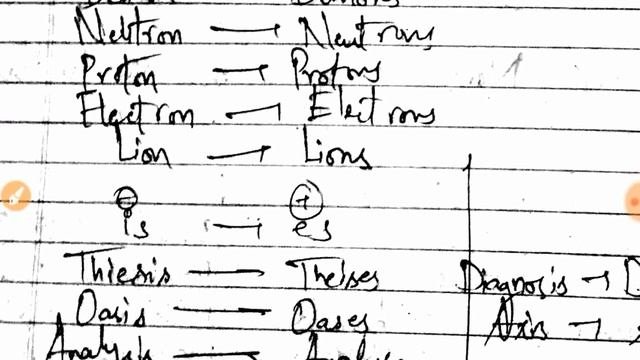 Neutron → Neutrons
Proton → Protons
Electron → Electrons
Lion → Lions
⊖ ⊕
is → es
Thiesis → Theises
Oasis → Oases
Diagnosis →
Axis →
Analysis →